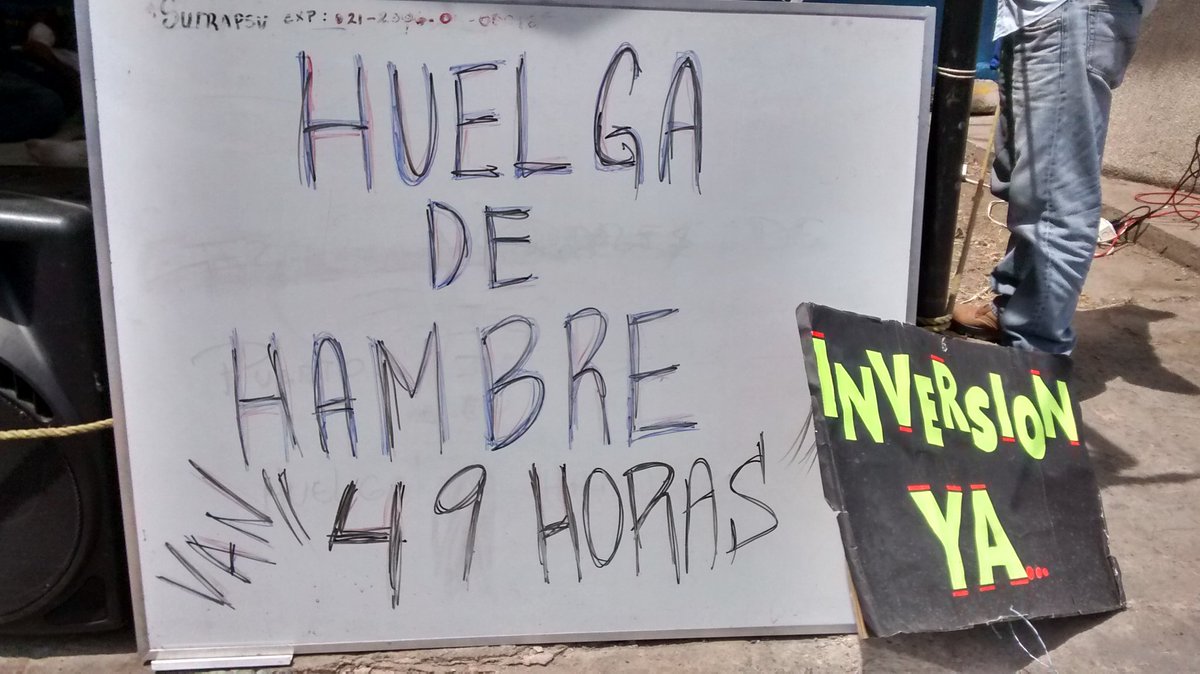 SUTRAPSU EXP: 021-
HUELGA
DE
HAMBRE
VAN 49 HORAS
INVERSION
YA...